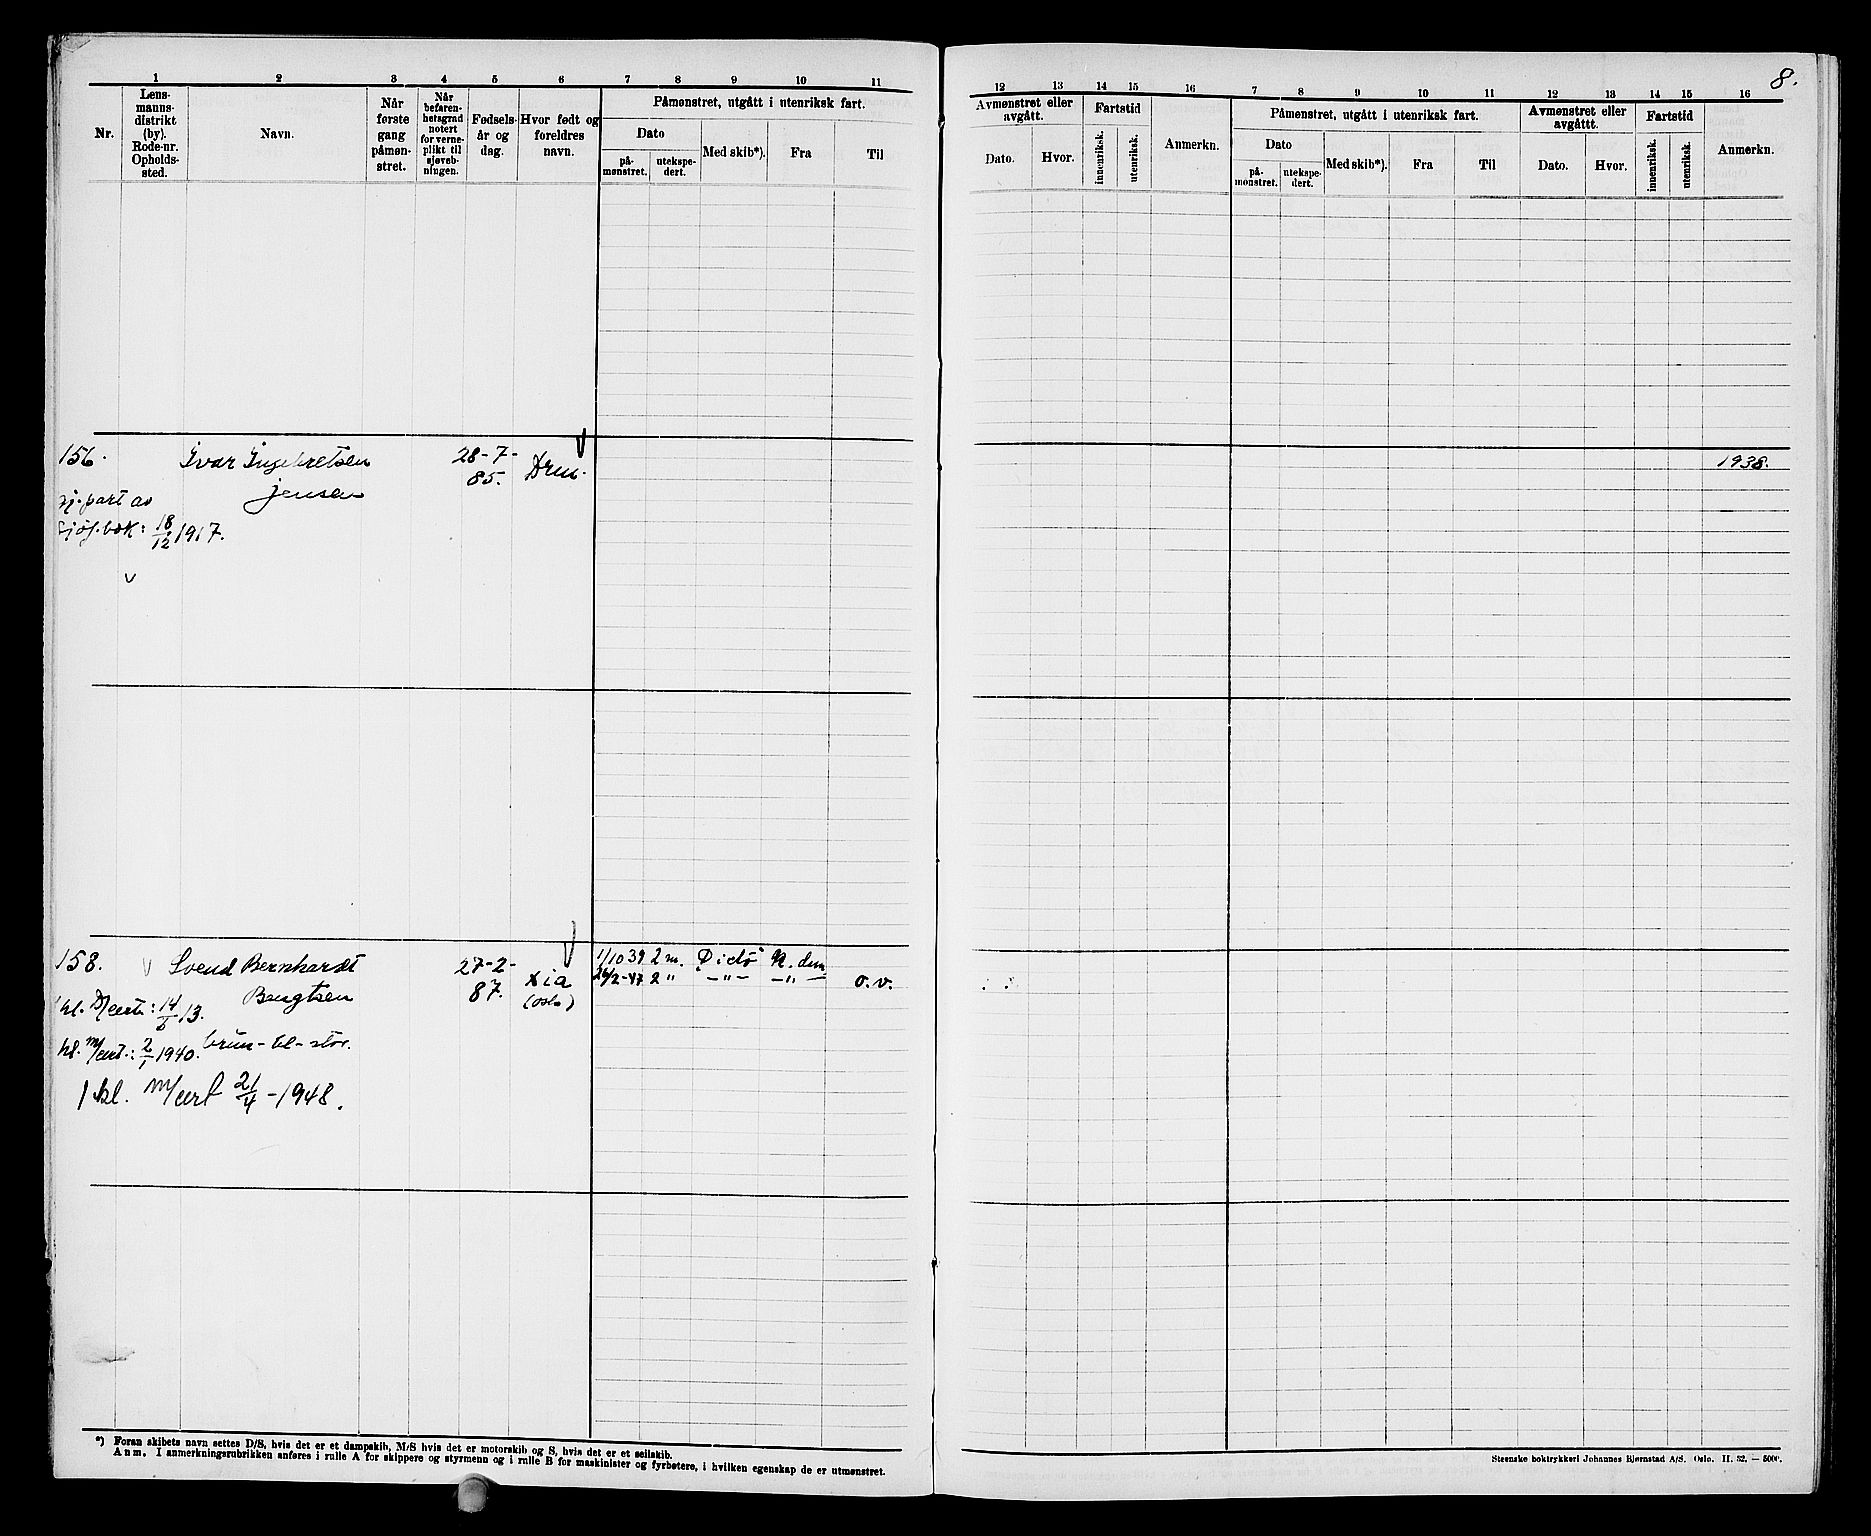 8.
1 2 3 4 5 6 7 8 9 10 11
Nr.
Lens-
manns-
distrikt
(by).
Rode-nr.
Opholds-
sted.
Navn.
Når
første
gang
påmøn-
stret.
Når
befaren-
hetsgrad
notert
for verne-
plikt til
sjøveb-
ningen.
Fødsels-
år og
dag.
Hvor født og
foreldres
navn.
Påmønstret, utgått i utenriksk fart.
Dato
på-
mønstret.
utekspe-
dert.
Med skib*).
Fra
Til
12 13 14 15 16 7 8 9 10 11 12 13 14 15 16
Avmønstret eller
avgått.
Dato.
Hvor.
Fartstid
innenriksk.
utenriksk.
Anmerkn.
Påmønstret, utgått i utenriksk fart.
Dato
på-
mønstret.
utekspe-
dert.
Med skib*).
Fra
Til
Avmønstret eller
avgåttt.
Dato.
Hvor.
Fartstid
innenriksk.
utenriksk.
Anmerkn.
156. Ivar Ingebretsen 28-7- Drm. 1938.
Jensen 85.
part av
sjøf.bok: 18/12 1917.
158. Svend Bernhardt 27-2- Xia 1/10 39 2 m. N. dem
Bengtsen 87. (Oslo) 26/2-47 2 " -"- -"- o.v.
kl. 14/ 13.
kl. m/cert.: 2/1 1940. brun- bl- stor.
1 kl. m/cert 21/4-1948.
*) Foran skibets navn settes D/S, hvis det er et dampskib, M/S hvis det er motorskib og S, hvis det er et seilskib.
Anm. I anmerkningsrubrikken anføres i rulle A for skippere og styrmenn og i rulle B for maskinister og fyrbøtere, i hvilken egenskap de er utmønstret.
Steenske boktrykkeri Johannes Bjørnstad A/S. Oslo. II. 32. — 5000.